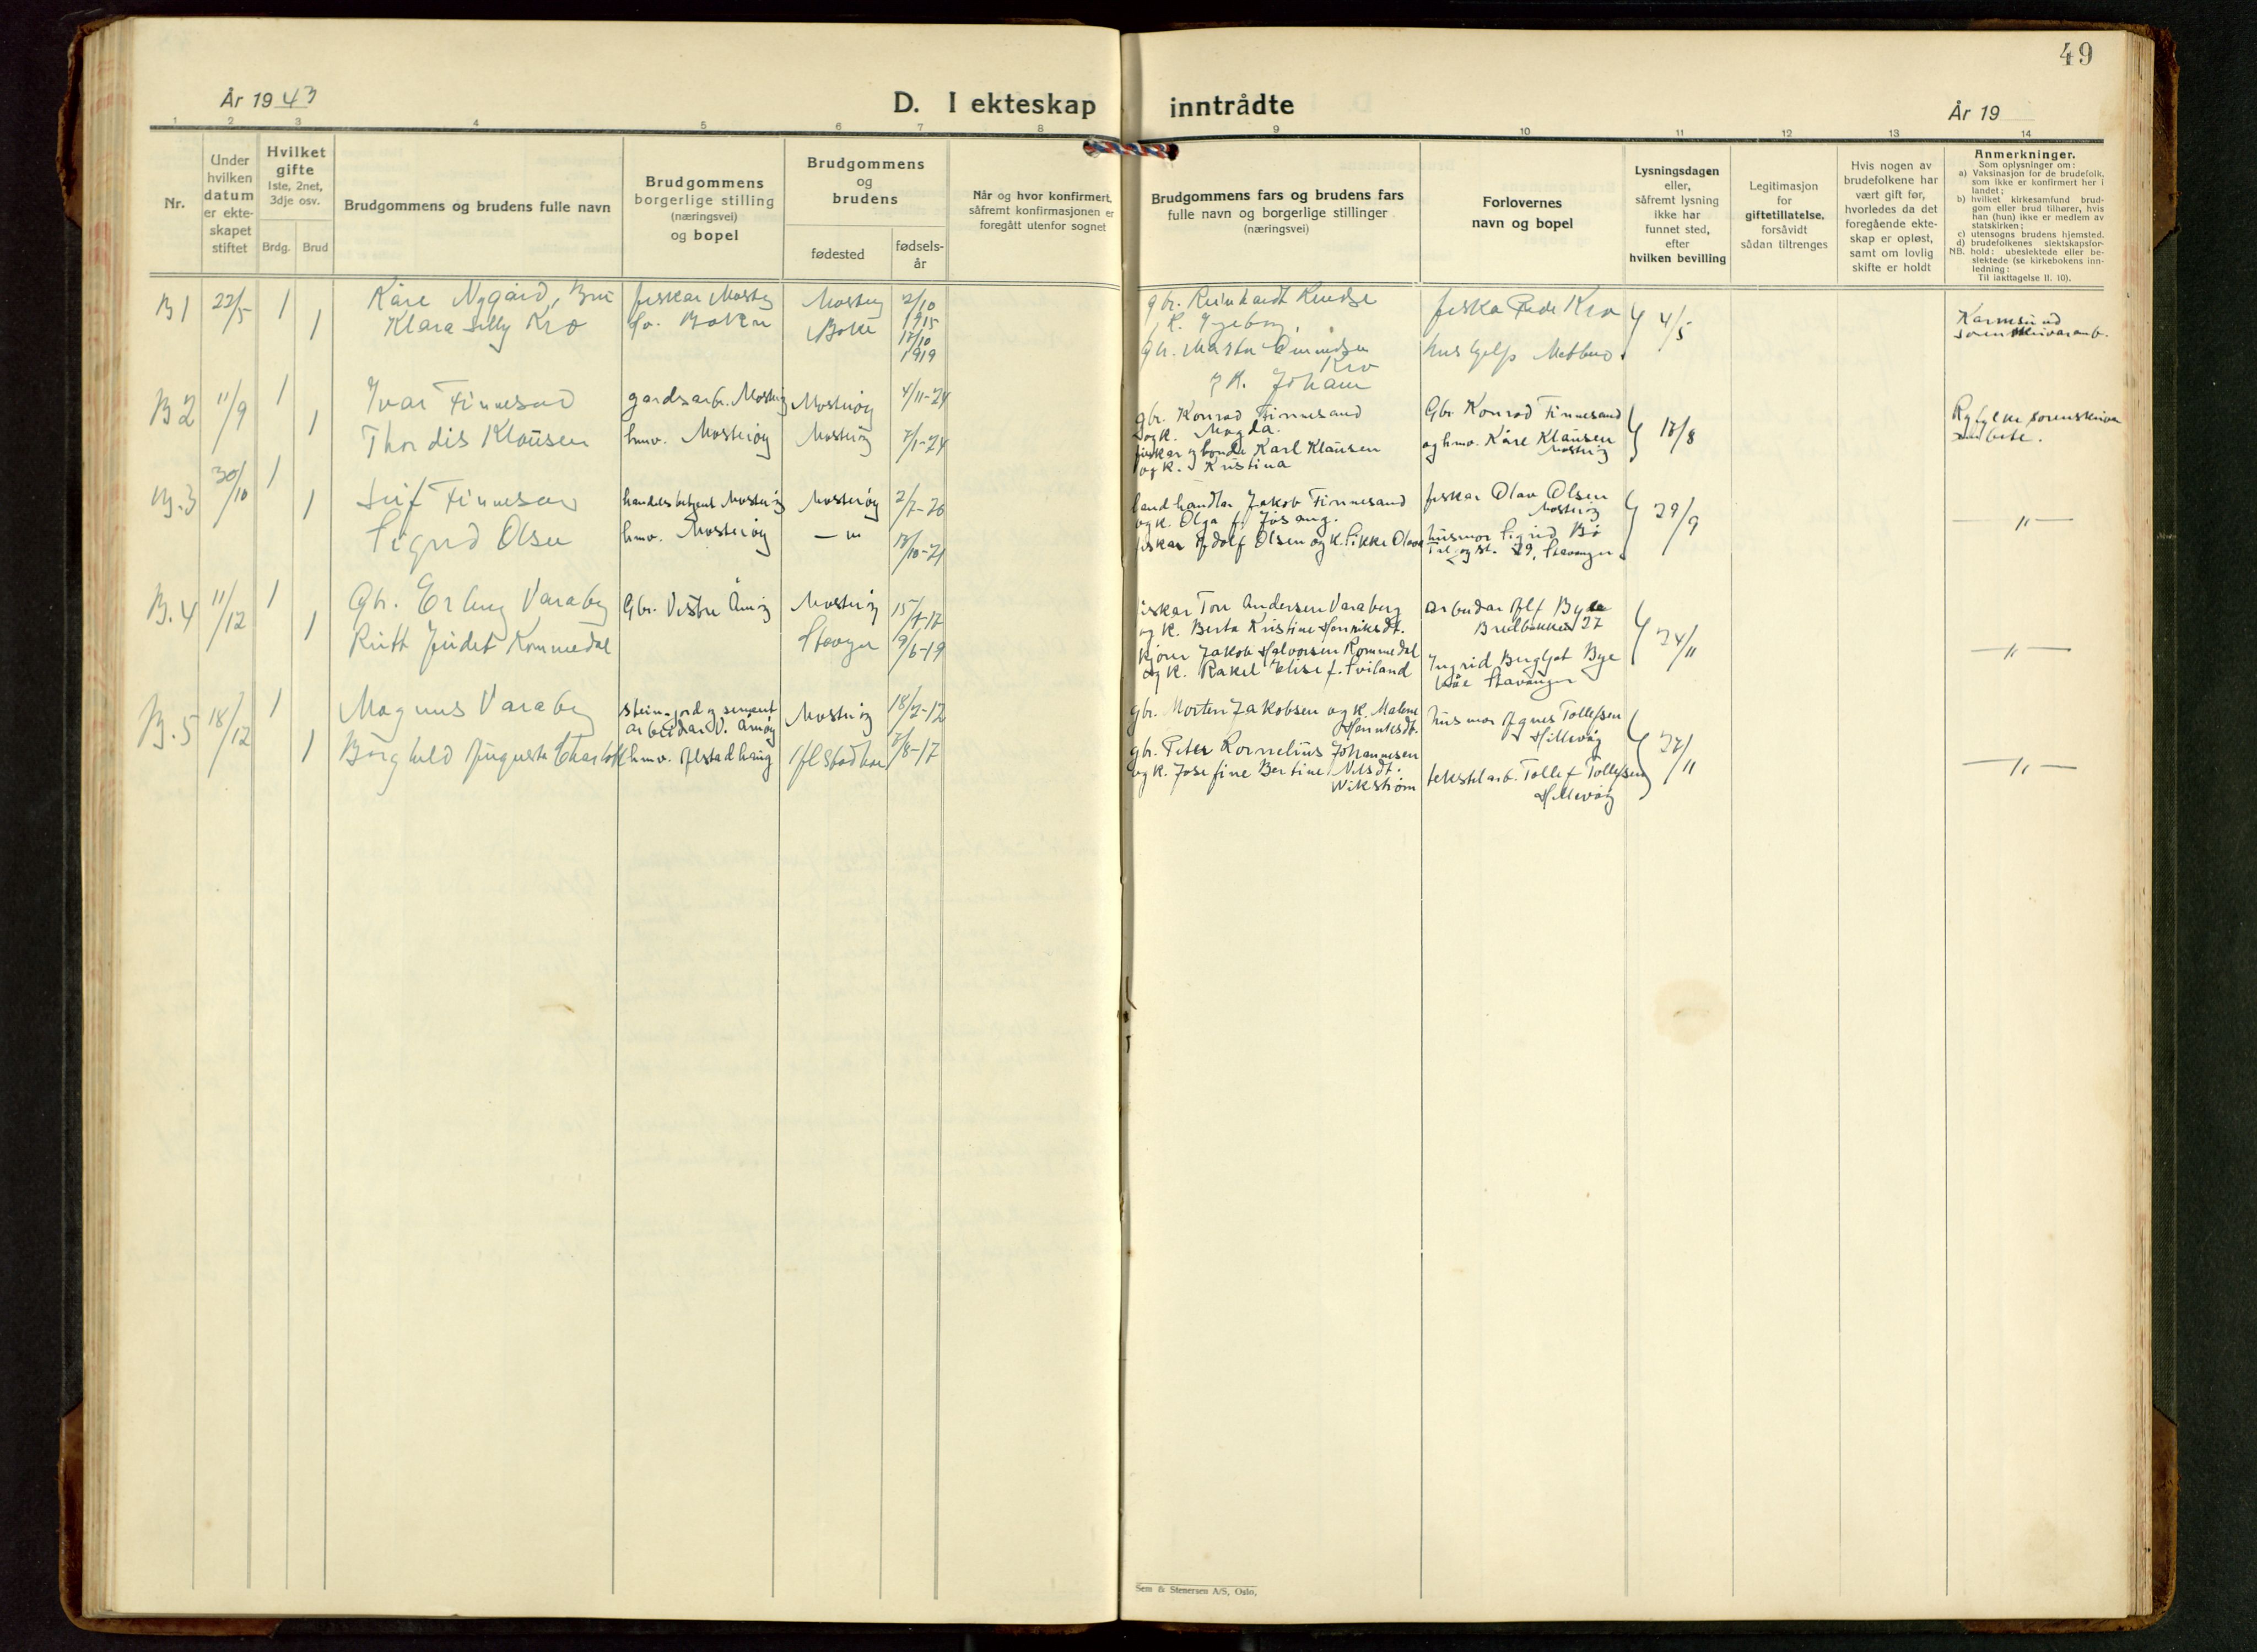 49
År 1943
D. I ekteskap inntrådte
År 19
1 2 3 4 5 6 7 8 9 10 11 12 13 14
Nr.
Under hvilken datum er ekteskapet stiftet
Hvilket gifte
1ste, 2net, 3dje osv.
Brdg. Brud
Brudgommens og brudens fulle navn
Brudgommens borgerlige stilling (næringsvei) og bopel
Brudgommens og brudens
fødested
fødsels-år
Når og hvor konfirmert, såfremt konfirmasjonen er foregått utenfor sognet
Brudgommens fars og brudens fars fulle navn og borgerlige stillinger (næringsvei)
Forlovernes navn og bopel
Lysningsdagen eller, såfremt lysning ikke har funnet sted, efter hvilken bevilling
Legitimasjon for giftetillatelse, forsåvidt sådan tiltrenges
Hvis nogen av brudefolkene har vært gift før, hvorledes da det foregående ekteskap er opløst, samt om lovlig skifte er holdt
Anmerkninger.
Som oplysninger om:
a) Vaksinasjon for de brudefolk, som ikke er konfirmert her i landet;
b) hvilket kirkesamfund brudgom eller brud tilhører, hvis han (hun) ikke er medlem av statskirken;
c) utensogns brudens hjemsted.
d) brudefolkenes slektskapsforhold: ubeslektede eller beslektede (se kirkebokens innledning:
NB.
Til iakttagelse II. 10).
B1 22/5 1 Kåre Nygård, fiskar Mosterøy 2/10 1915
1 Klara Lilly Kro Bokn 17/10 1919
gbr. Reinhardt
K. Ingeborg
Kro
Johanne
fiskar Kro
hushjelp
4/5
Karmsund sorenskrivaremb.
B2 11/9 1 Ivar Finnesand gardsarb. Mosterøy Mosterøy 4/11-24
1 Thordis Klausen hmv. Mosterøy Mosterøy 7/1-24
gbr. Konrad Finnesand
og k. Magda.
fiskar og bonde Karl Klausen
og k. Kristina
Gbr. Konrad Finnesand
og hmv. Kåre Klausen
Mosterøy
17/8
Ryfylke sorenskrivar
B.3 30/10 1 Leif Finnesand handelsbetjent Mosterøy Mosterøy 2/7-20
1 Sigrid Olsen hmv. Mosterøy — " 13/10-21
landhandlar Jakob Finnesand
og k. Olga f. Jøsang.
fiskar Adolf Olsen og k.
fiskar Olav Olsen
Mosterøy
husmor Sigrid Bø
29, Stavanger
29/9
— " —
B.4 11/12 1 Gbr. Erling Varaberg Gbr. Vestre Åmøy Mosterøy 15/7-17
1 Ruth Judet Kommedal Stavanger 9/6-19
fiskar Tore Andersen Varaberg
og k. Berta Kristine Henriksdt.
Jakob Halvorsen Kommedal
og k. Rakel Elise f. Sviland
arbeidar Alf Bye
Bredbakken 27
Ingrid Bergljot Bye
Stavanger
24/11
— " —
B.5 18/12 1 Magnus Varaberg stein- jord og sement
arbeidar V. Åmøy Mosterøy 18/2-12
1 Borghild Auguste Charlott hmv. Alstadhaug Alstadhau 7/8-17
gbr. Morten Jakobsen og k. Malene
Henriksdt.
gbr. Peter Kornelius Johannesen
og k. Josefine Bertine Nilsdt.
Wikstrøm
husmor Agnes Tollefsen
Hillevåg
tekstilarb. Tollef Tollefsen
Hillevåg
27/11
— " —
Sem & Stenersen A/S, Oslo.